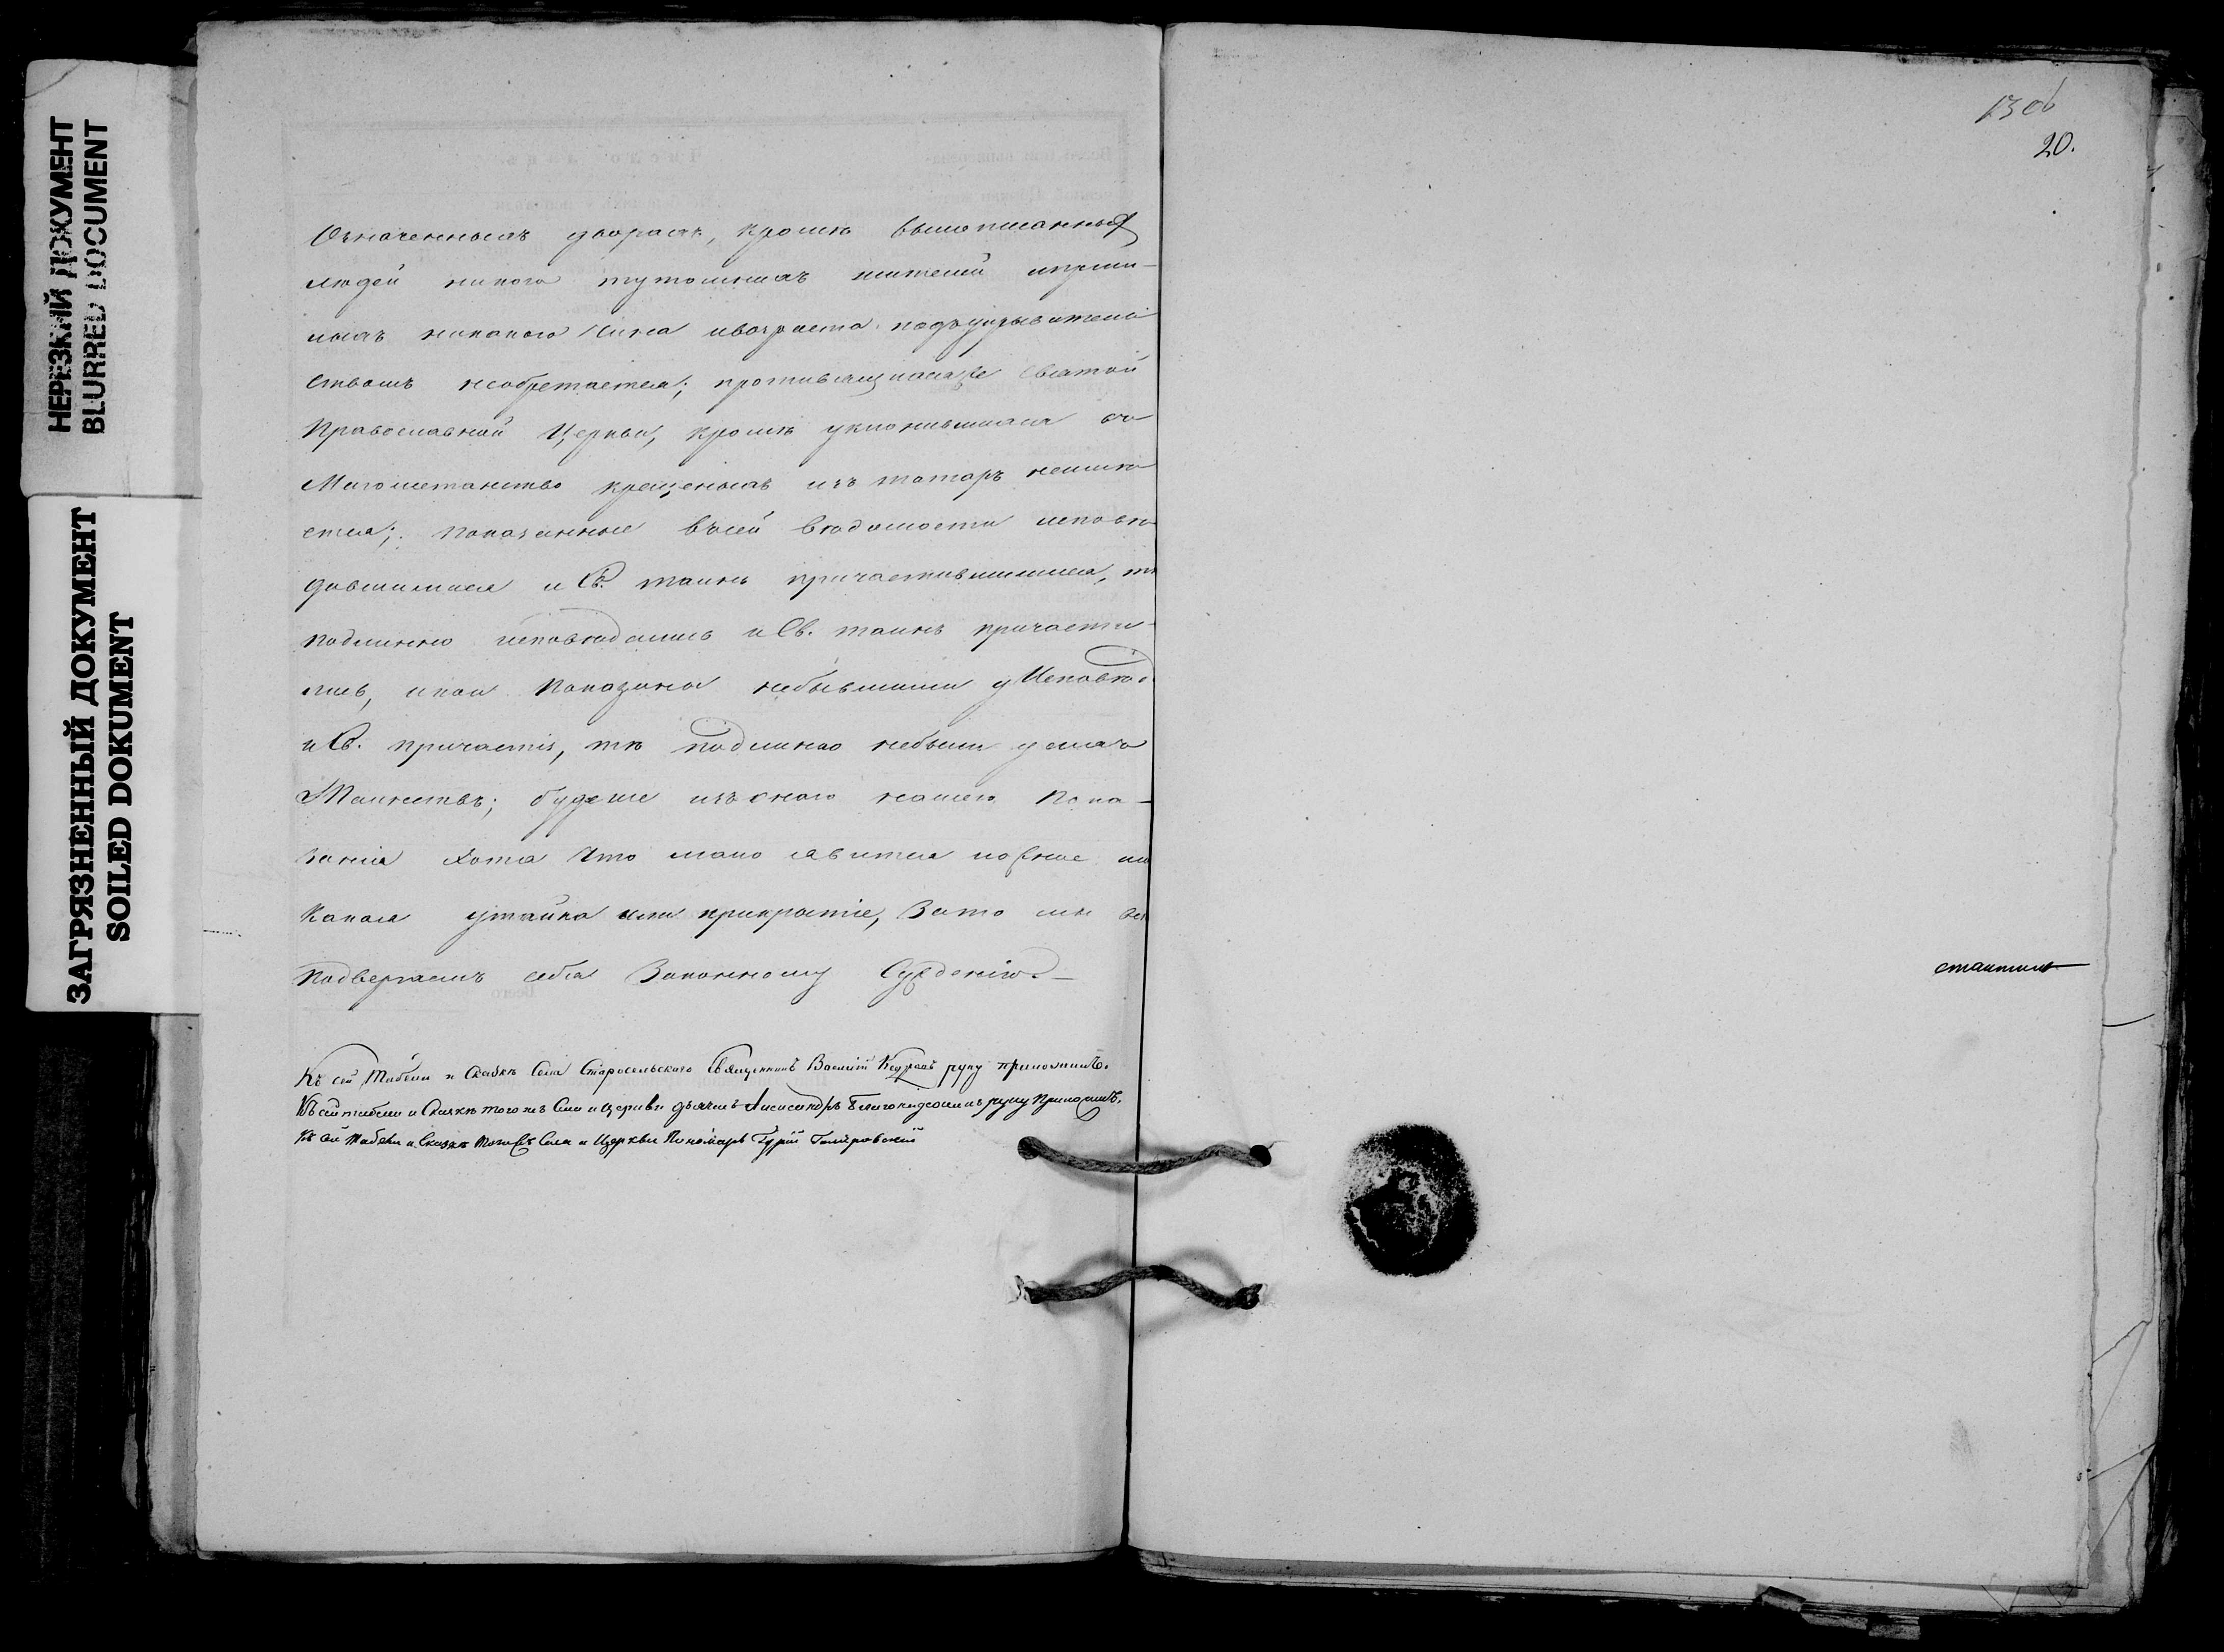 НЕРЕЗКИЙ ДОКУМЕНТ
BLURRED DOCUMENT
ЗАГРЯЗНЕННЫЙ ДОКУМЕНТ
SOILED DOKUMENT
Означенныхъ дворахъ, кромѣ вышеписанныхъ
людей никого тутошнихъ жителей ипришы-
лыхъ никакого чина ивозраста подъукрыватель
ствомъ необретается; противящихсяже Святой
Православной Церкви, кромѣ уклонившихся въ
Магометанство крещеныхъ изъ татаръ неимѣ
ется; показанные всей вѣдомости исповѣ
давшимися и Св. таинъ причастившимися, тѣ
подлинно исповѣдались и Св. таинъ причасти-
лись, акои показаны небывшими у Исповѣди
и Св. причастія, тѣ подлинно небыли усихъ
Таинствъ; будеже изъсего нашего Пока-
занія хотя что мало явится ложное или
Какая утайка или прикрытіе, Зато мы
подвергаемъ себя Законному Сужденію.
Къ сей Табели и Скаскѣ Села Старосельского Священникъ Василій руку приложилъ.
Къ сей табели и Скаскѣ тогожъ Села и церкви дьячекъ Александръ руку Приложилъ.
Къ сей Табели и Сказкѣ Тогожъ Села и Церкви Пономарь Гурій
20.